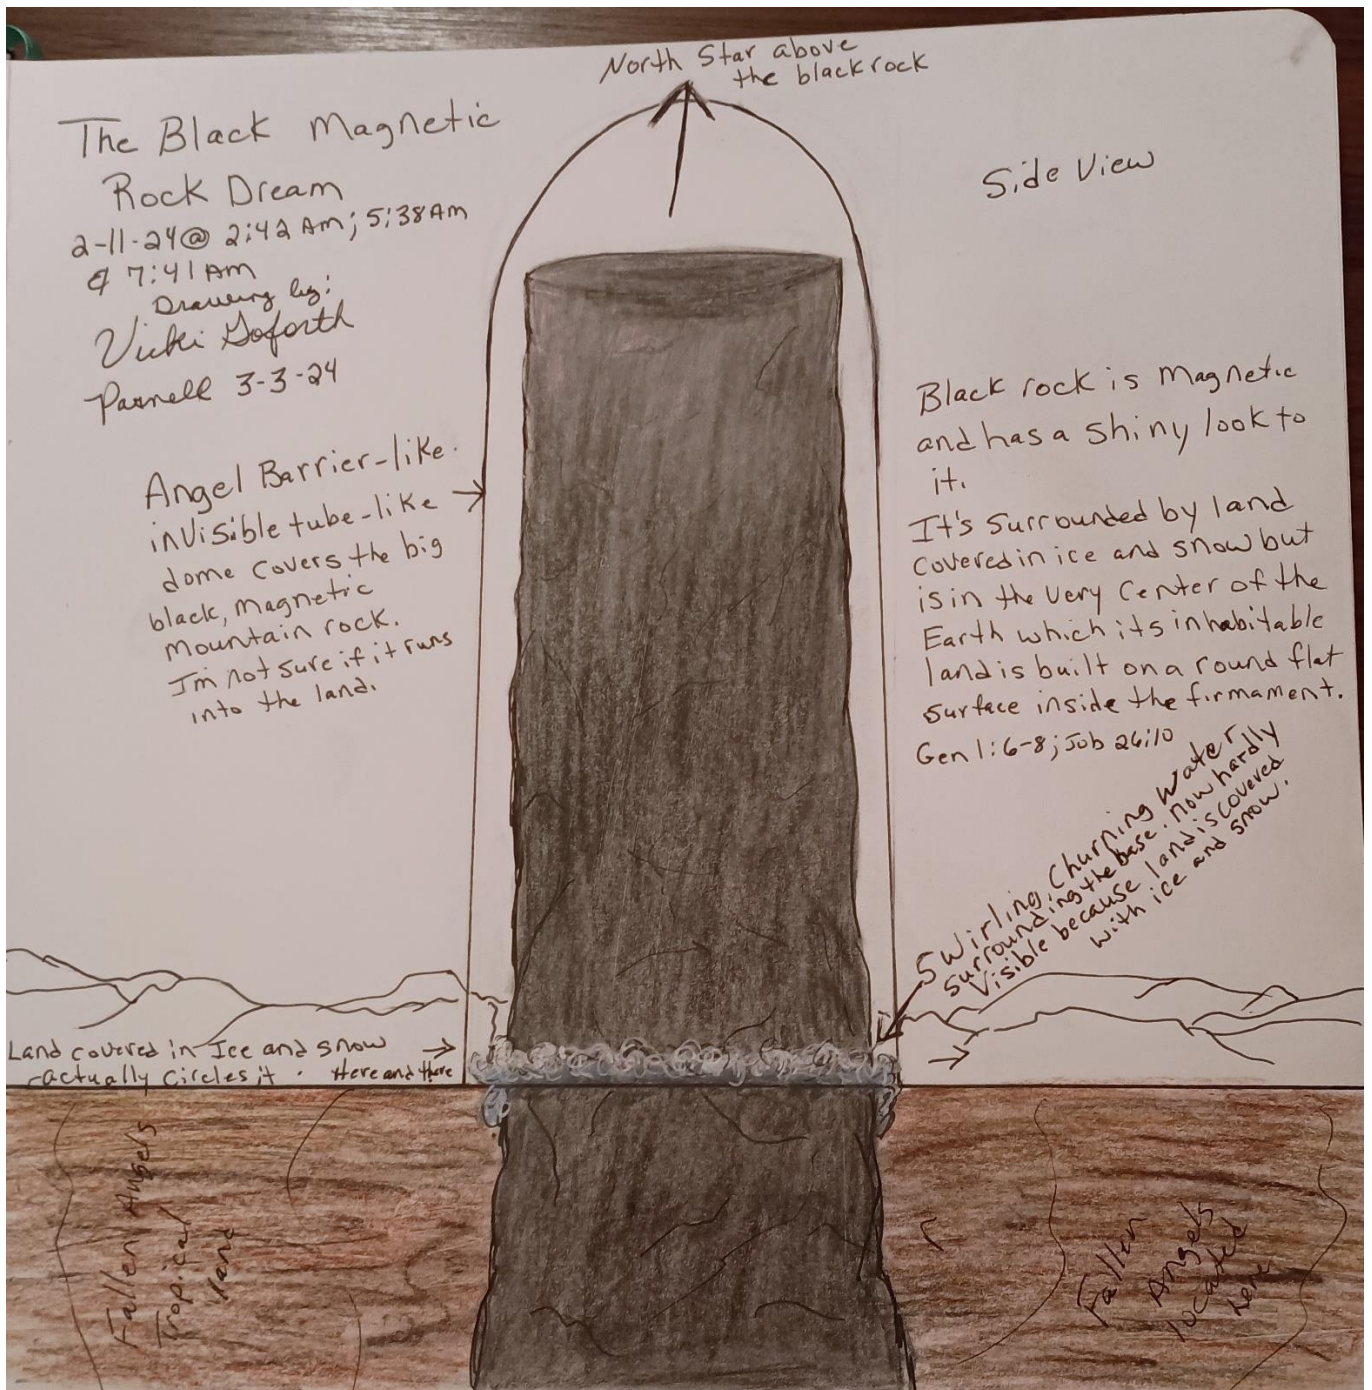 North Star above
the black rock
The Black Magnetic
Rock Dream
2-11-24@ 2:42 Am; 5:38 Am
& 7:41 AM
Drawing by:
Vicki Goforth
Parnell 3-3-24
Side View
Angel Barrier-like
invisible tube-like
dome covers the big
black, magnetic
mountain rock.
I'm not sure if it runs
into the land.
Black rock is magnetic
and has a shiny look to
it.
It's surrounded by land
covered in ice and snow but
is in the very center of the
Earth which its inhabitable
land is built on a round flat
surface inside the firmament.
Gen 1:6-8; Job 26:10
Swirling, churning water
surrounding the base. now hardly
visible because land is covered
with ice and snow.
Land covered in Ice and snow
actually circles it. Here and there
Fallen Angels
Tropical
land
Fallen
Angels
located
here